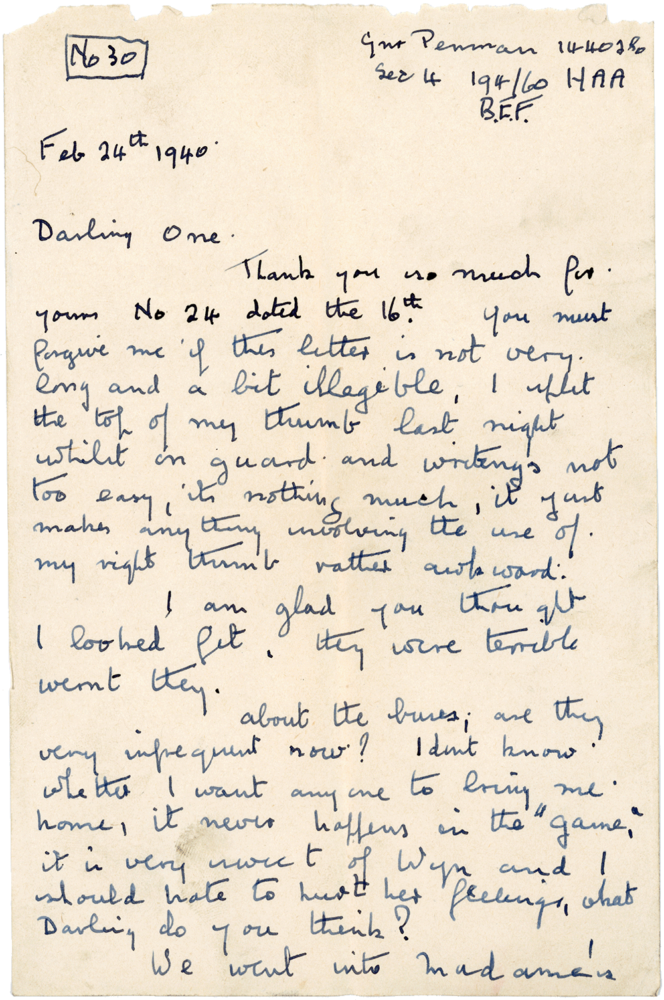 No 30
Gnr Penman 1440280
Sec 4 194/60 HAA
B.E.F.
Feb 24th 1940.
Darling One.
Thank you so much for.
yours No 24 dated the 16th. You must
forgive me if this letter is not very.
long and a bit illegible, I split
the top of my thumb last night
whilst on guard. and writings not
too easy, its nothing much, it just
makes anything involving the use of.
my right thumb rather awkward.
I am glad you thought
I looked fit, they were terrible
wernt they.
about the buses, are they
very infrequent now? I dont know.
whether I want anyone to bring me.
home, it never happens in the "game,"
it is very sweet of Wyn and I
should hate to hurt her feelings, what
Darling do you think?
We went into Madame's